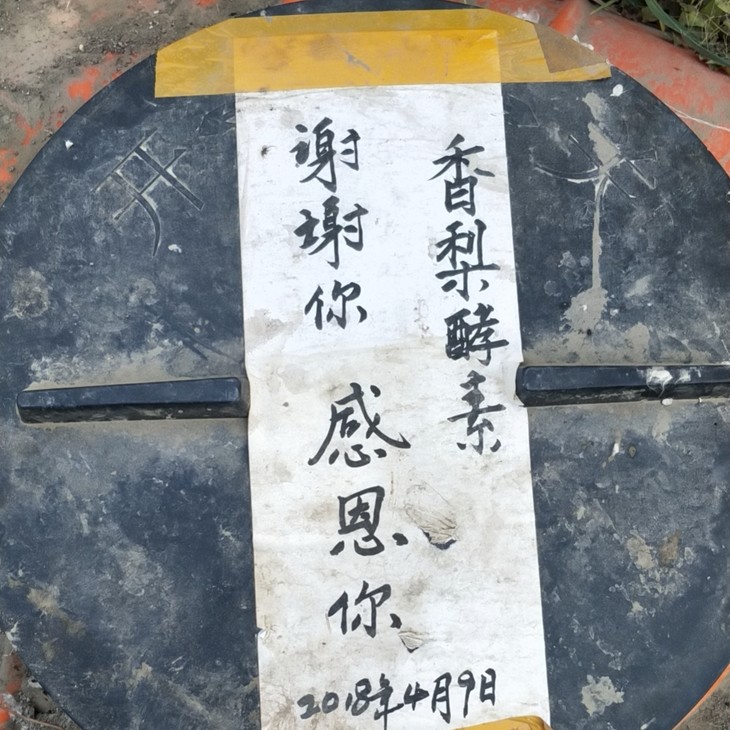 香梨酵素
谢谢你
感恩你
2018年4月9日
开